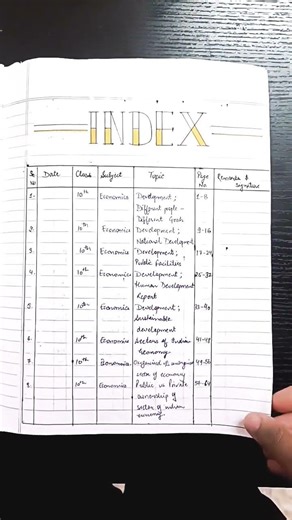 INDEX
Sr. No. Date Class Subject Topic Page No. Remarks & Signature
1. 10th Economics Development;
Different people -
Different Goals
2. 10th Economics Development; 9-16
National Development
3. 10th Economics Development; 17-24
Public Facilities
4. 10th Economics Development; 25-32
Human Development
Report
5. 10th Economics Development; 33-40
Sustainable
development
6. 10th Economics Sectors of Indian 41-48
Economy
7. 10th Economics
of economy
8. 10th Economics Public vs Private
ownership of
sector of indian
economy